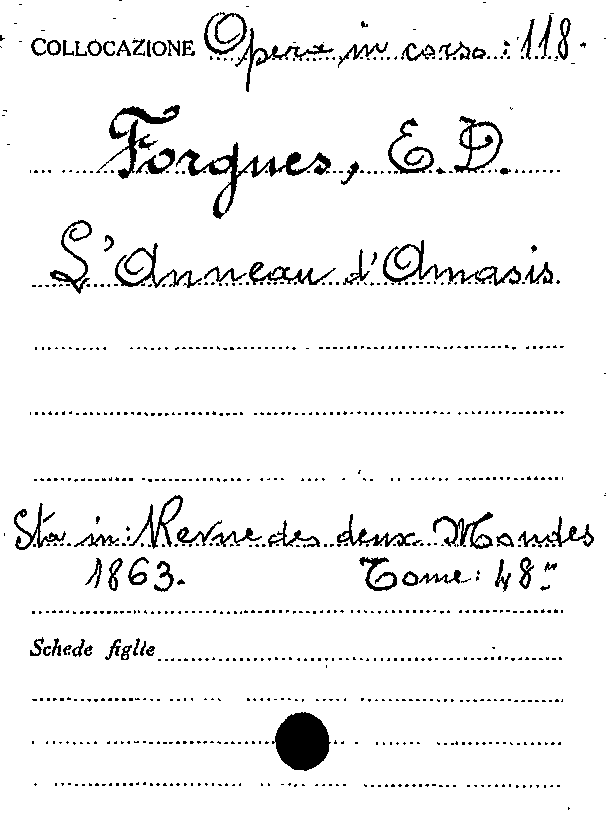 COLLOCAZIONE Opera in corso: 118.
Forgues, E. D.
L'Anneau d'Amasis.
Sta in: Revue des deux Mondes
1863. Tome: 48.m
Schede figlie